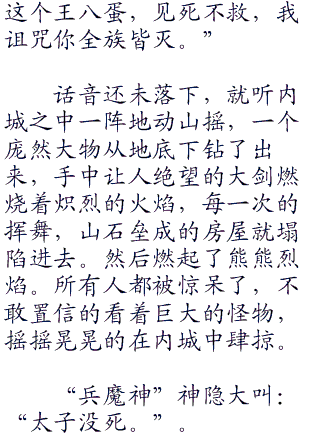 这个王八蛋，见死不救，我
诅咒你全族皆灭。”
话音还未落下，就听内
城之中一阵地动山摇，一个
庞然大物从地底下钻了出
来，手中让人绝望的大剑燃
烧着炽烈的火焰，每一次的
挥舞，山石垒成的房屋就塌
陷进去。然后燃起了熊熊烈
焰。所有人都被惊呆了，不
敢置信的看着巨大的怪物，
摇摇晃晃的在内城中肆掠。
“兵魔神”神隐大叫：
“太子没死。”。